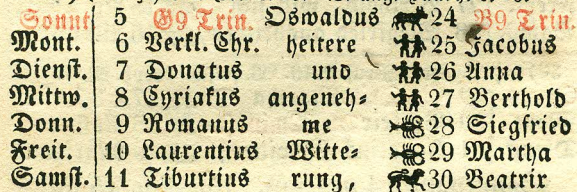 Sonnt. 5 G9 Trin. Oswaldus 24 B9 Trin.
Mont. 6 Verkl. Chr. heitere 25 Jacobus
Dienst. 7 Donatus und 26 Anna
Mittw. 8 Cyriakus angeneh- 27 Berthold
Donn. 9 Romanus me 28 Siegfried
Freit. 10 Laurentius Witte- 29 Martha
Samst. 11 Tiburtius rung, 30 Beatrix